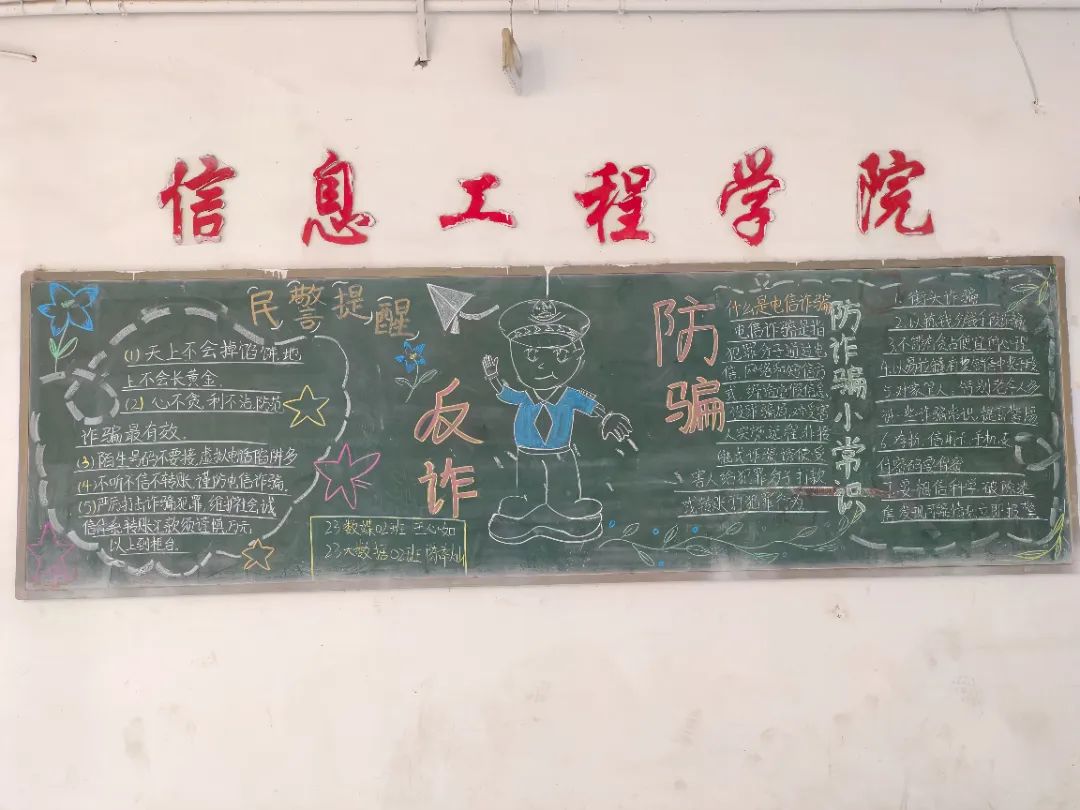 信息工程学院
民警提醒
(1) 天上不会掉馅饼地
上不会长黄金.
(2) 心不贪,利不沾,防范
诈骗最有效.
(3) 陌生号码不要接,虚拟电话陷阱多
(4) 不听不信不转账,谨防电信诈骗.
(5) 严厉打击诈骗犯罪,维护社会诚
信体系,转账汇款须谨慎,万元
以上到柜台.
反诈
23数媒02班 王心如
23大数据02班
防骗
什么是电信诈骗
电信诈骗是指
犯罪分子通过电
信、网络和短信方
式,编造虚假信息
设置骗局,对受害
人实施远程、非接
触式诈骗,诱使受
害人给犯罪分子打款
或转账的犯罪行为
防诈骗小常识
1. 街头诈骗
3.不要贪占便宜的心理
5.对家里人,特别老人多
讲一些诈骗常识,提高警惕
6.存折、信用卡、手机
7.要相信科学,破除迷
信,发现可疑信息立即报警